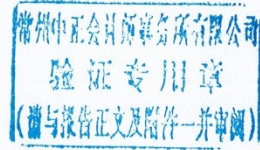 常州中正会计师事务所有限公司
验证专用章
(需与报告正文及附件一并审阅)